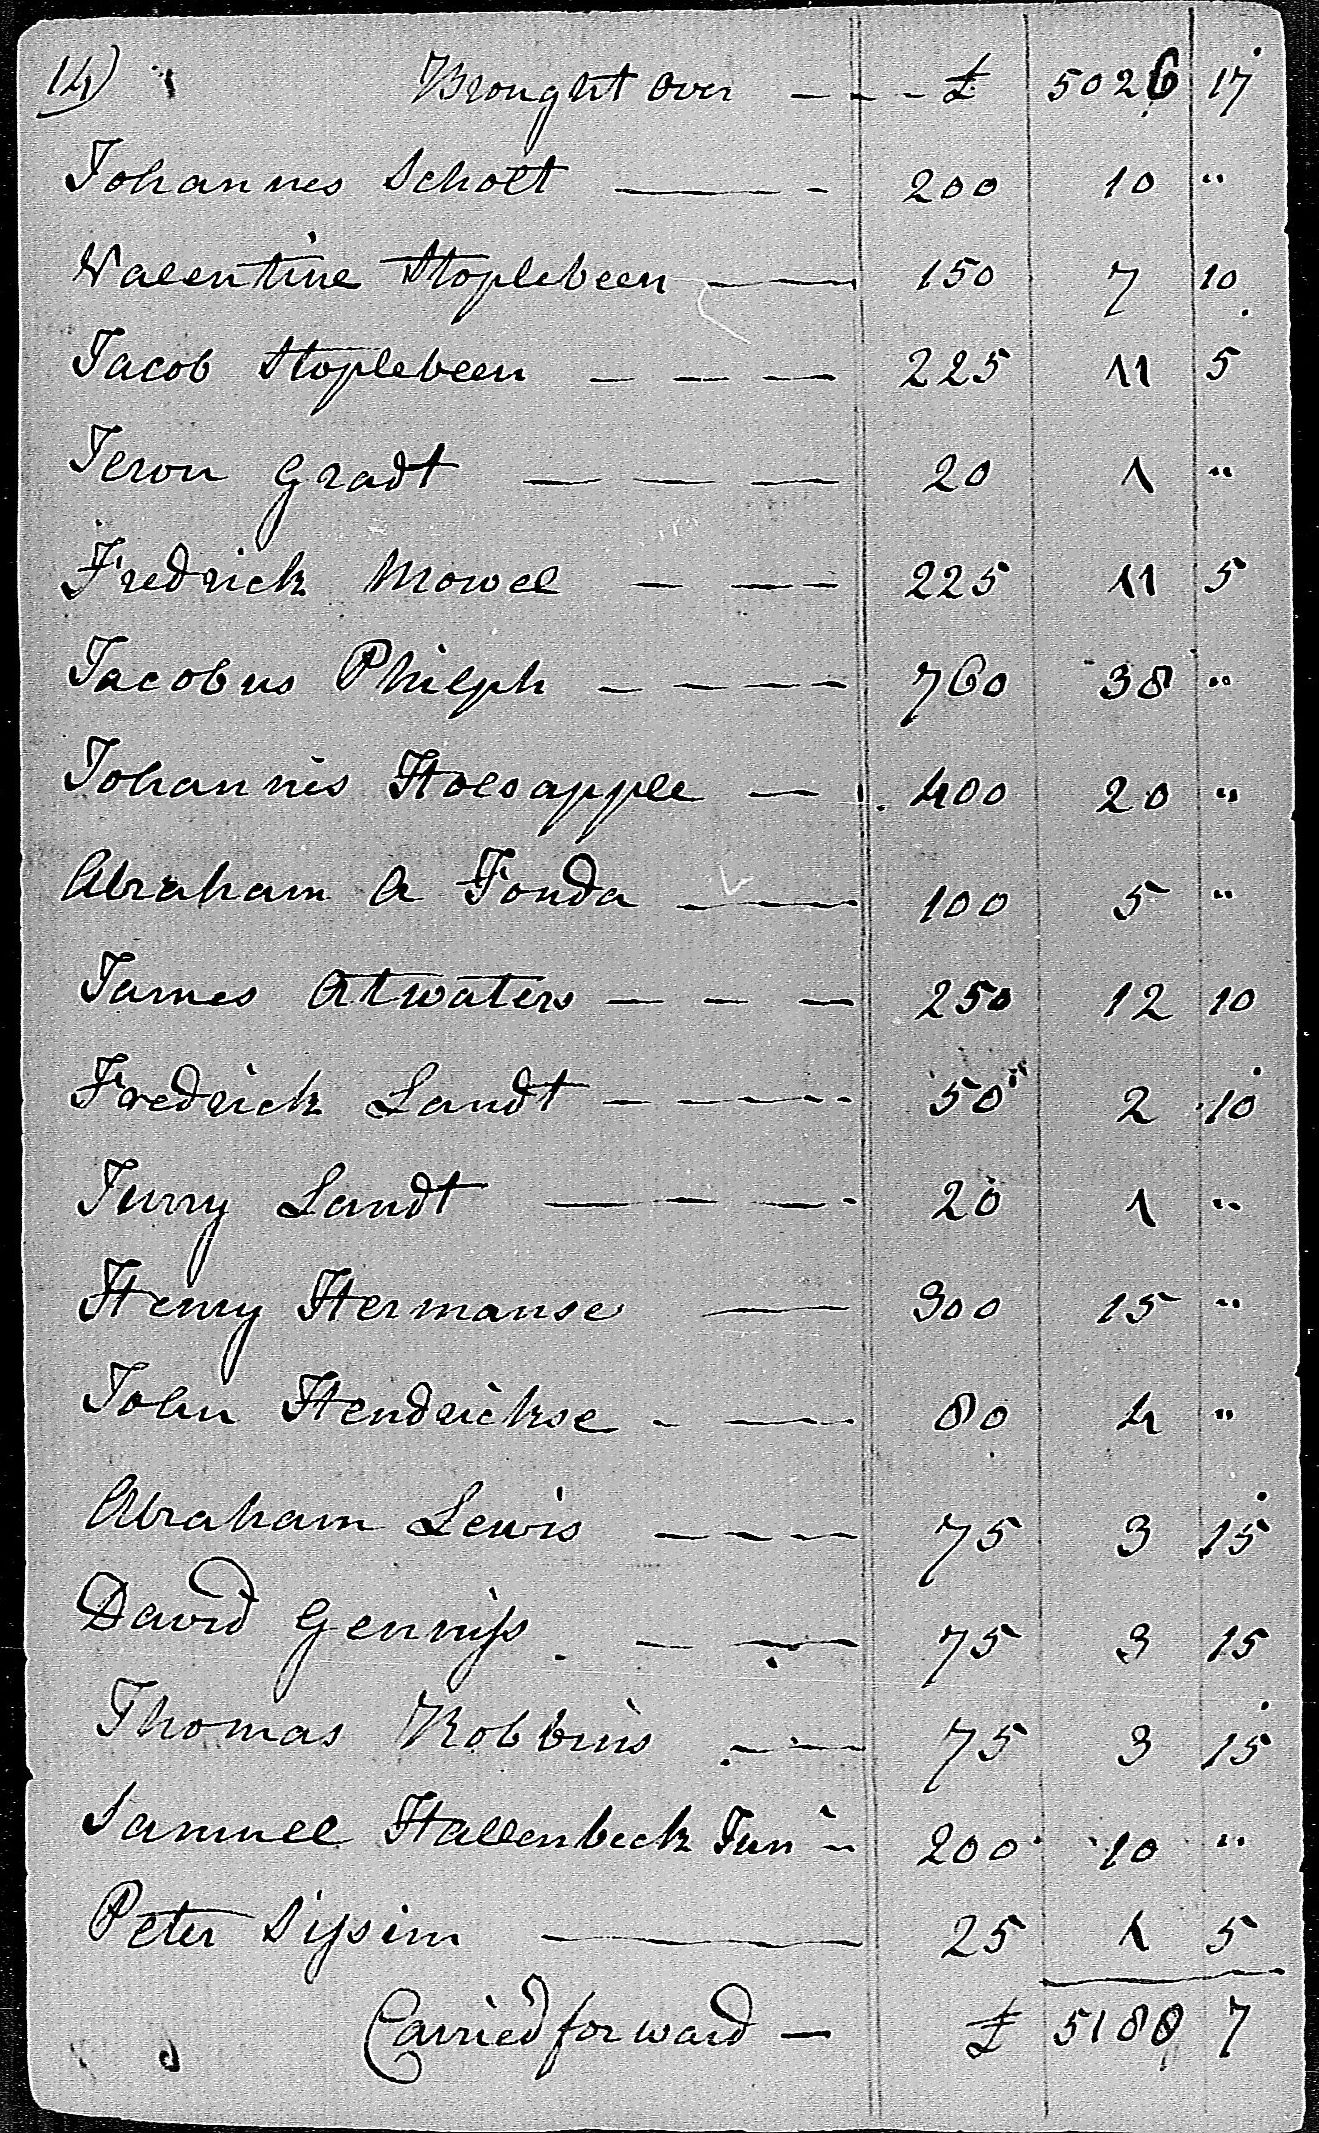 14) Brought Over - - - £ 5026 17
Johannes Scholt — - 200 10 "
Valentine Stoplebeen — 150 7 10
Jacob Stoplebeen — — — 225 11 5
Jeron Gradt — — — 20 1 "
Fredrick Mowel — — 225 11 5
Jacobus Philph — — — 760 38 "
Johannis Holsapple — 400 20 "
Abraham A Fonda — 100 5 "
James Atwaters — — — 250 12 10
Fredrick Landt — — — 50 2 10
Jurry Landt — — — 20 1 "
Henry Hermanse — 300 15 "
John Hendrickse - — 80 4 "
Abraham Lewis — — — 75 3 15
David Genniss — — 75 3 15
Thomas Robbins — — 75 3 15
Samuel Hallenbeck Jun - 200 10 "
Peter Sissim — 25 1 5
Carried forward — £ 5188 7